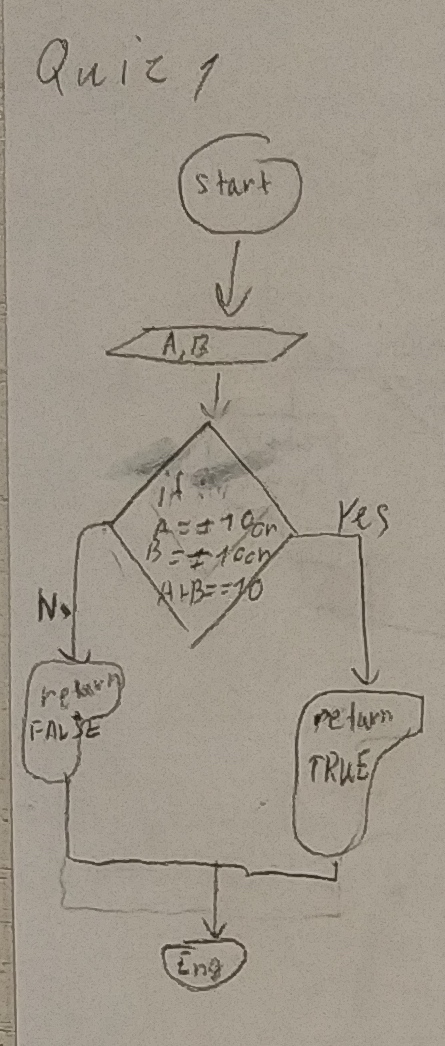 Quiz 1
start
A, B
if
A = ± 10 or
B = ± 10 or
A+B==10
Yes
No
return
FALSE
return
TRUE
End